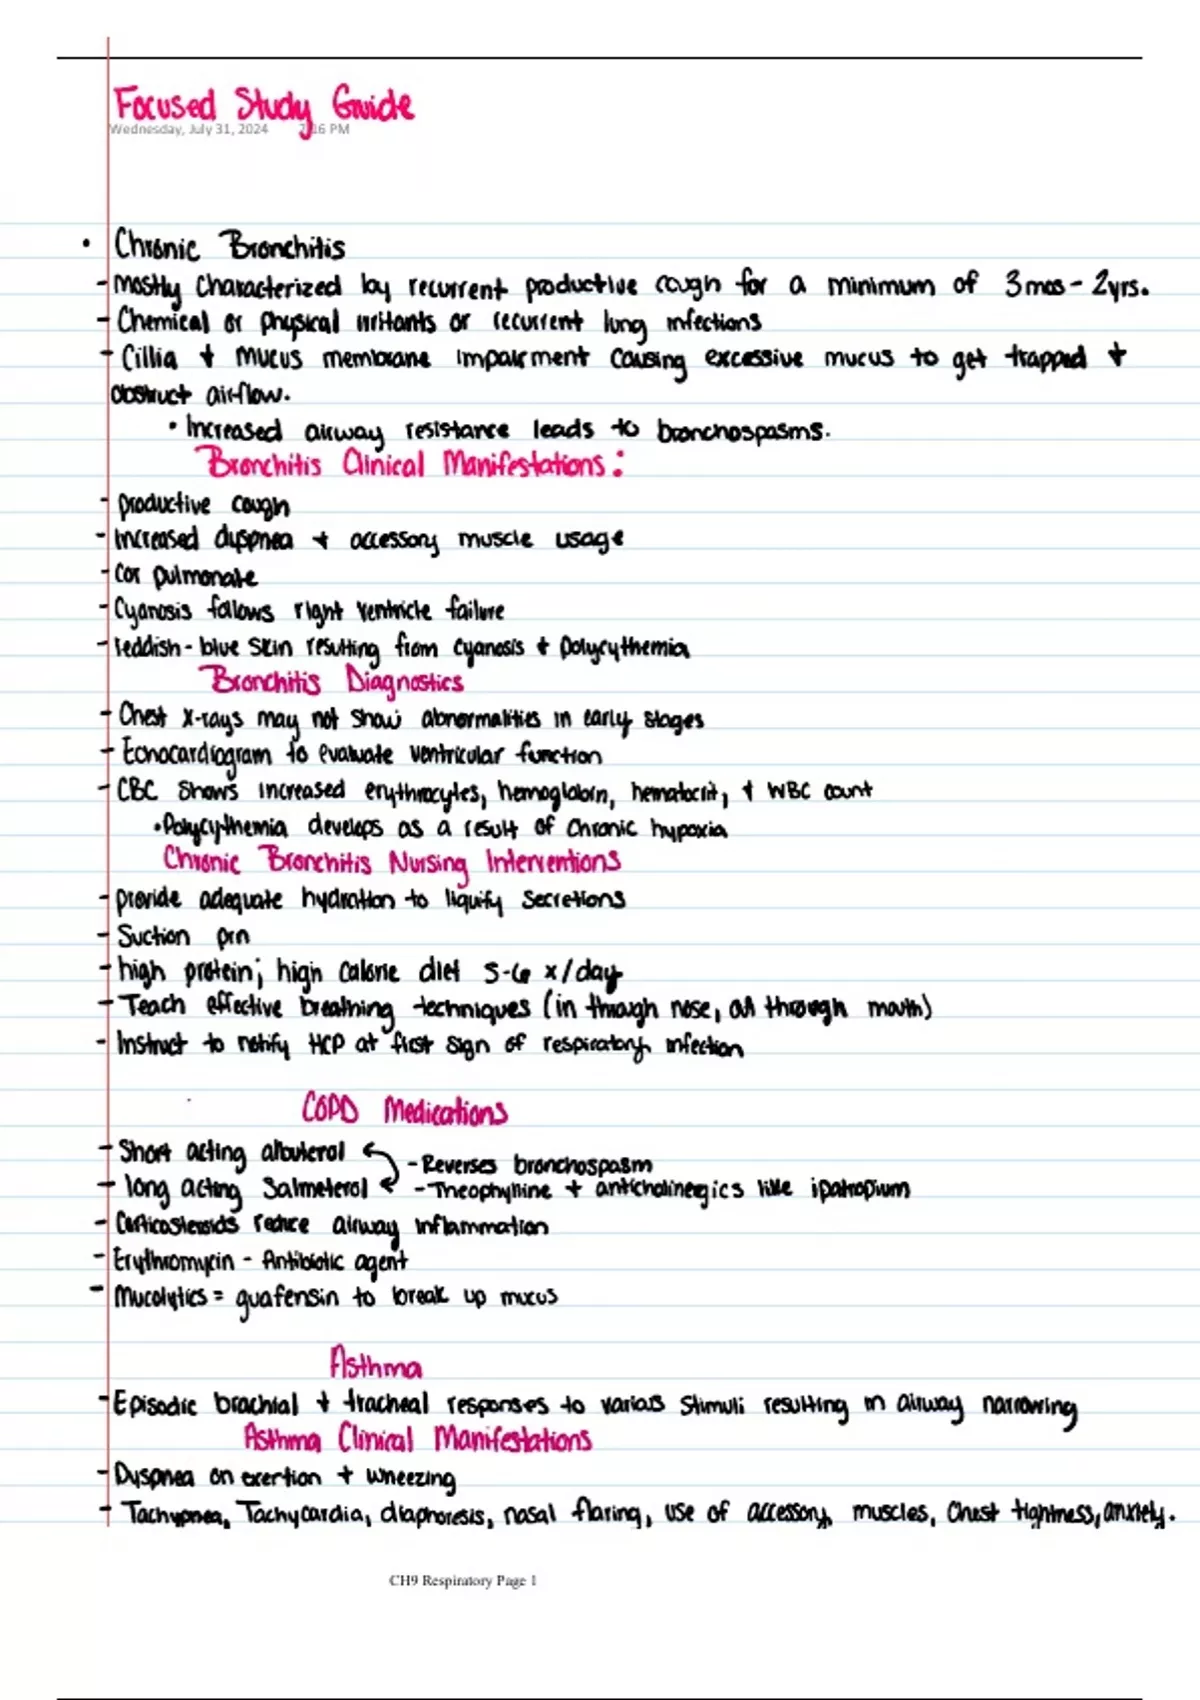 Focused Study Guide
Wednesday, July 31, 2024 2:16 PM
• Chronic Bronchitis
- Mostly characterized by recurrent productive cough for a minimum of 3mos - 2yrs.
- Chemical or physical irritants or recurrent lung infections
- Cillia + Mucus membrane impairment causing excessive mucus to get trapped +
obstruct airflow.
• Increased airway resistance leads to bronchospasms.
Bronchitis Clinical Manifestations:
- productive cough
- Increased dyspnea + accessory muscle usage
- Cor pulmonate
- Cyanosis follows right ventricle failure
- reddish-blue skin resulting from cyanosis + polycythemia
Bronchitis Diagnostics
- Chest x-rays may not show abnormalities in early stages
- Echocardiogram to evaluate ventricular function
- CBC shows increased erythrocytes, hemoglobin, hematocrit, + WBC count
• Polycythemia develops as a result of chronic hypoxia
Chronic Bronchitis Nursing Interventions
- provide adequate hydration to liquify secretions
- Suction prn
- high protein; high calorie diet 5-6 x/day
- Teach effective breathing techniques (in through nose, out through mouth)
- Instruct to notify HCP at first sign of respiratory infection
COPD Medications
- Short acting albuterol
- Reverses bronchospasm
- long acting Salmeterol
- Theophylline + anticholinergics like ipatropium
- Corticosteroids reduce airway inflammation
- Erythromycin - Antibiotic agent
- Mucolytics = guafensin to break up mucus
Asthma
- Episodic brachial + tracheal responses to various stimuli resulting in airway narrowing
Asthma Clinical Manifestations
- Dyspnea on exertion + wheezing
- Tachypnea, Tachycardia, diaphoresis, nasal flaring, use of accessory muscles, Chest tightness, anxiety.
CH9 Respiratory Page 1